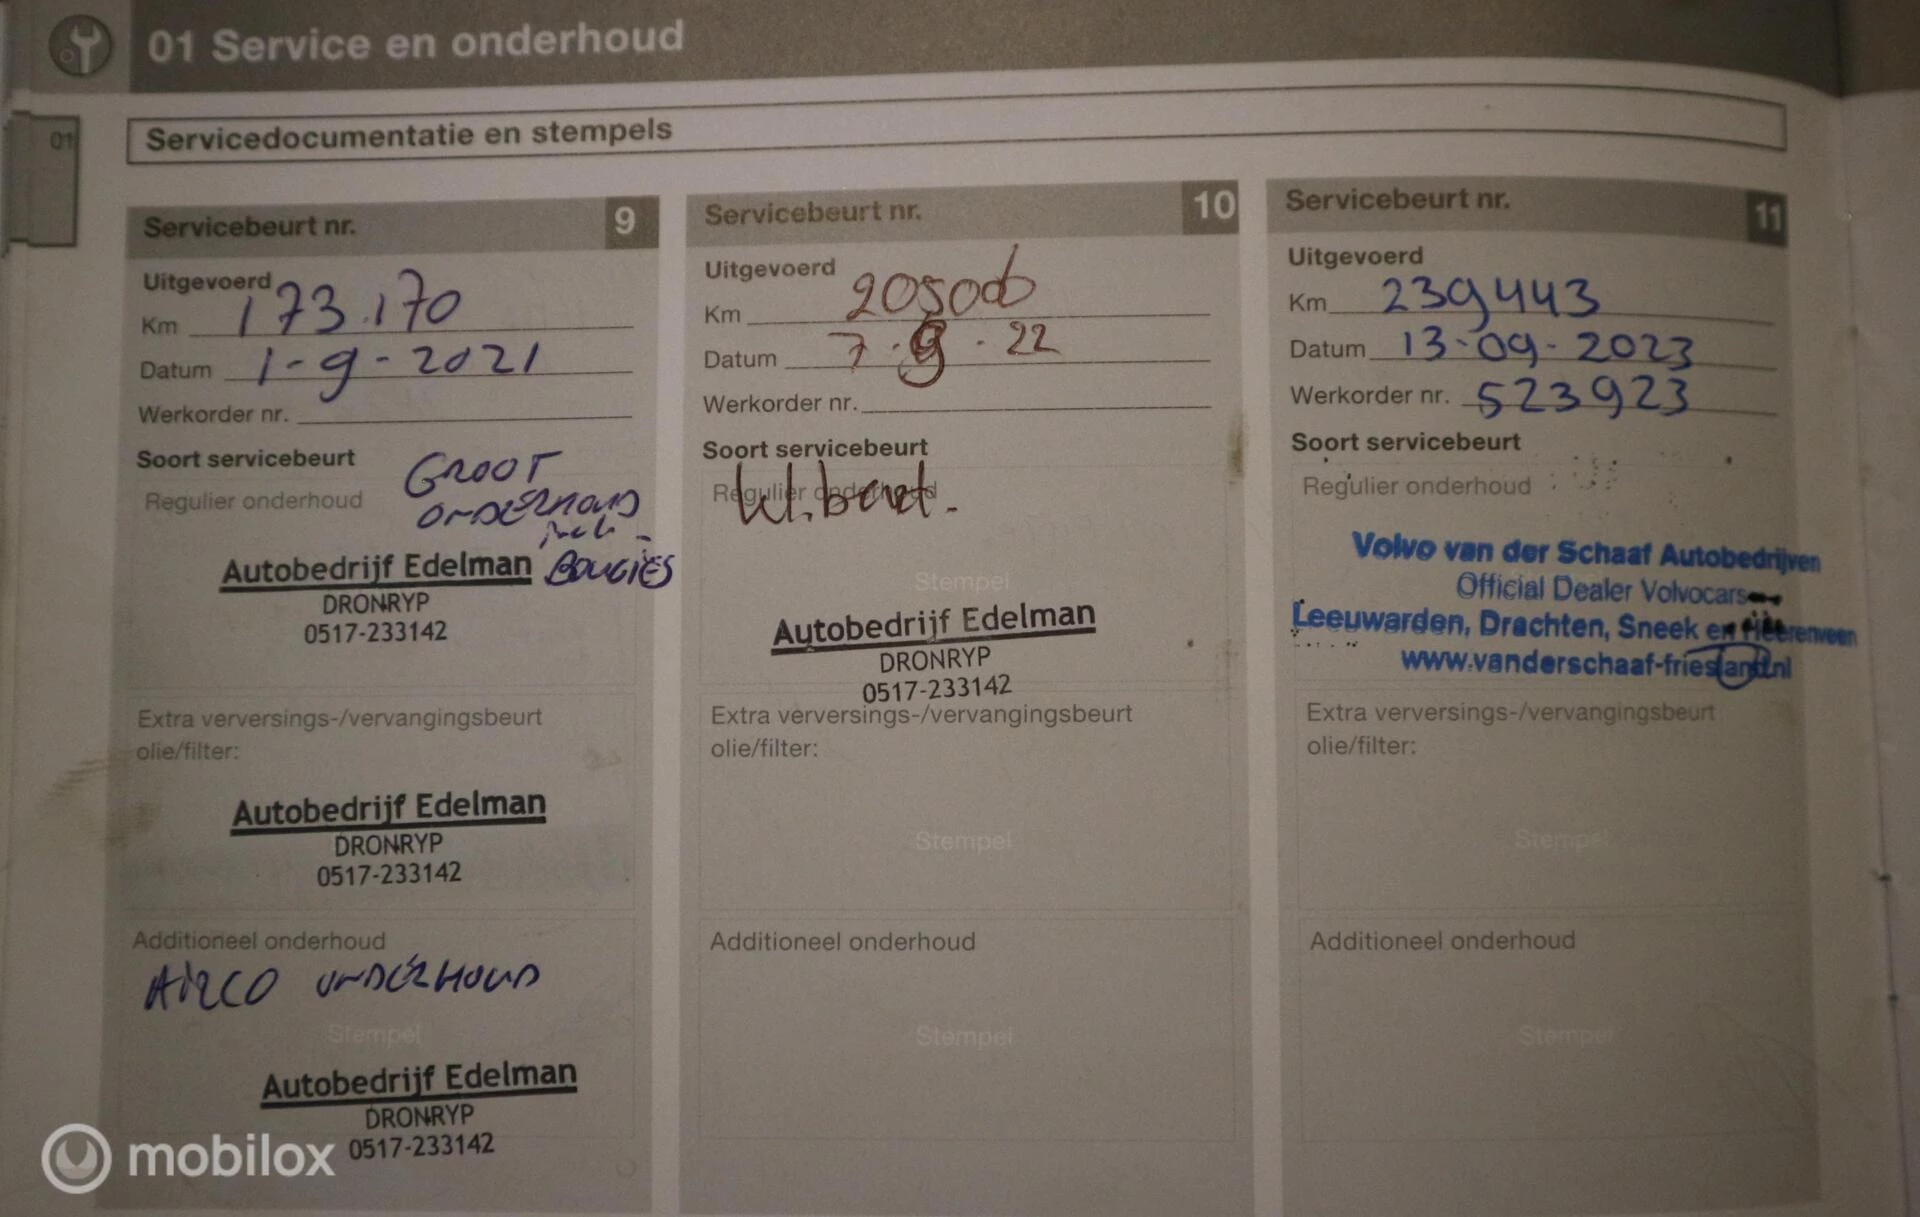 01 Service en onderhoud
01
Servicedocumentatie en stempels
Servicebeurt nr. 9
Uitgevoerd
Km 173.170
Datum 1-9-2021
Werkorder nr.
Soort servicebeurt
Regulier onderhoud
GROOT
ONDERHOUD
BOUGIES
Autobedrijf Edelman
DRONRYP
0517-233142
Extra verversings-/vervangingsbeurt
olie/filter:
Autobedrijf Edelman
DRONRYP
0517-233142
Additioneel onderhoud
AIRCO ONDERHOUD
Stempel
Autobedrijf Edelman
DRONRYP
0517-233142
Servicebeurt nr. 10
Uitgevoerd
Km
Datum 7.9.22
Werkorder nr.
Soort servicebeurt
Regulier onderhoud
kl.beurt.
Stempel
Autobedrijf Edelman
DRONRYP
0517-233142
Extra verversings-/vervangingsbeurt
olie/filter:
Stempel
Additioneel onderhoud
Stempel
Servicebeurt nr. 11
Uitgevoerd
Km 239443
Datum 13-09-2023
Werkorder nr. 523923
Soort servicebeurt
Regulier onderhoud
Volvo van der Schaaf Autobedrijven
Official Dealer Volvocars
Leeuwarden, Drachten, Sneek en Heerenveen
www.vanderschaaf-friesland.nl
Extra verversings-/vervangingsbeurt
olie/filter:
Stempel
Additioneel onderhoud
Stempel
mobilox